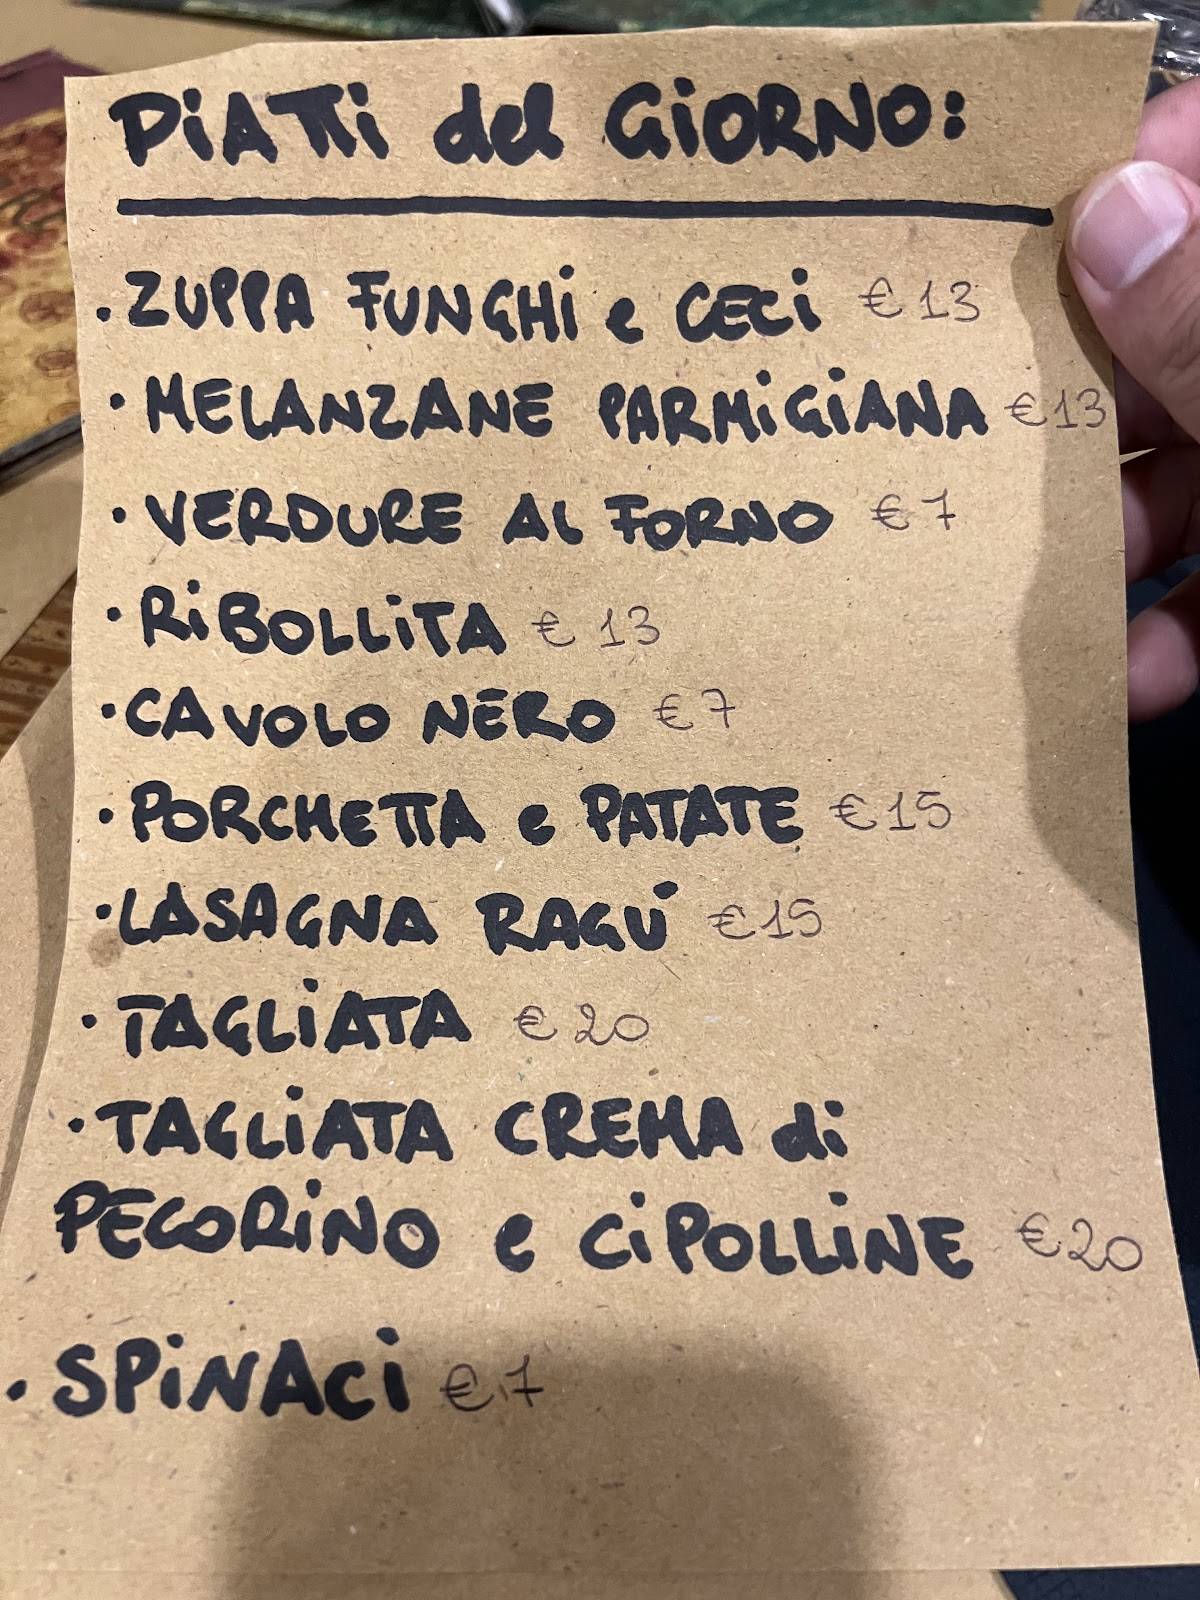 PiATTi del GiORNO:
• ZUPPA FUNGHi e CECi € 13
• MELANZANE PARMiGiANA € 13
• VERDURE AL FORNO € 7
• RiBOLLiTA € 13
• CAVOLO NERO € 7
• PORCHETTA e PATATE € 15
• LASAGNA RAGÚ € 15
• TAGLiATA € 20
• TAGLiATA CREMA di
PECORiNO e CiPOLLiNE € 20
• SPiNACi € 7